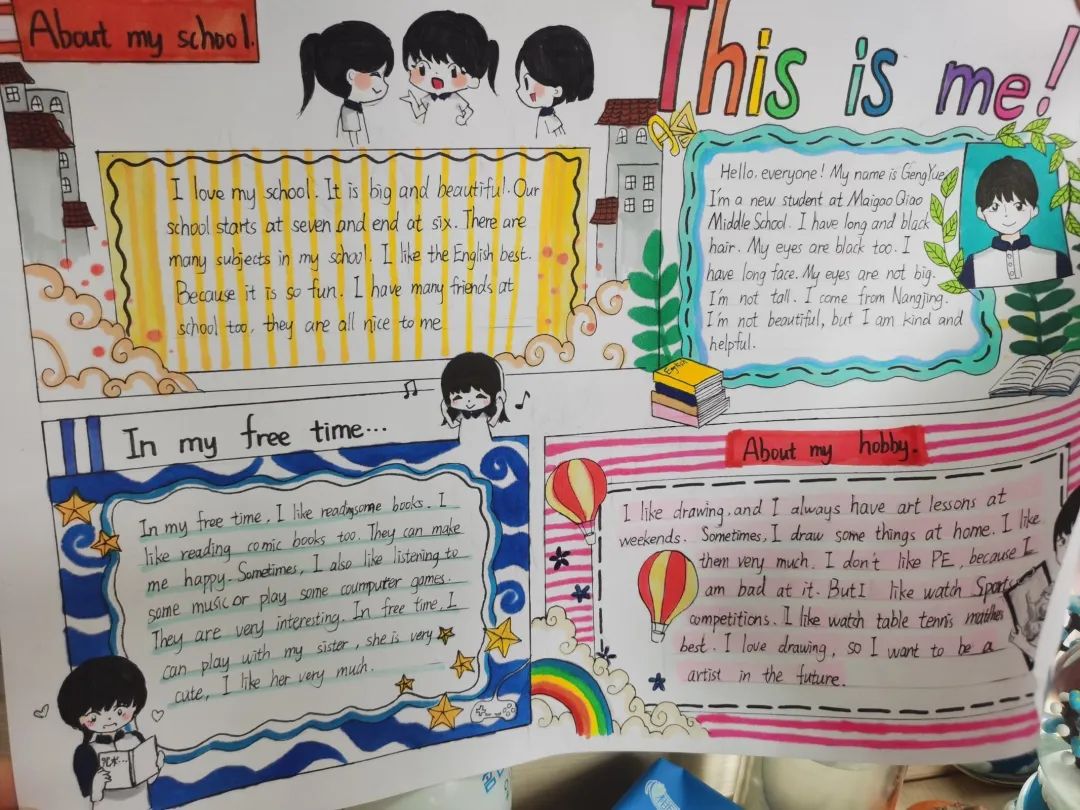 About my school.
I love my school. It is big and beautiful. Our
school starts at seven and end at six. There are
many subjects in my school. I like the English best.
Because it is so fun. I have many friends at
school too, they are all nice to me
This is me!
Hello, everyone! My name is GengYue
I'm a new student at Maigao Qiao
Middle School. I have long and black
hair. My eyes are black too. I
have long face. My eyes are not big.
I'm not tall. I come from Nangjing.
I'm not beautiful, but I am kind and
helpful.
English
In my free time...
In my free time, I like reading some books. I
like reading comic books too. They can make
me happy. Sometimes, I also like listening to
some music or play some coumputer games.
They are very interesting. In free time, I
can play with my sister, she is very
cute, I like her very much.
About my hobby.
I like drawing, and I always have art lessons at
weekends. Sometimes, I draw some things at home. I like
them very much. I don't like PE, because I
am bad at it. But I like watch Sports
competitions. I like watch table tennis matches
best. I love drawing, so I want to be a
artist in the future.